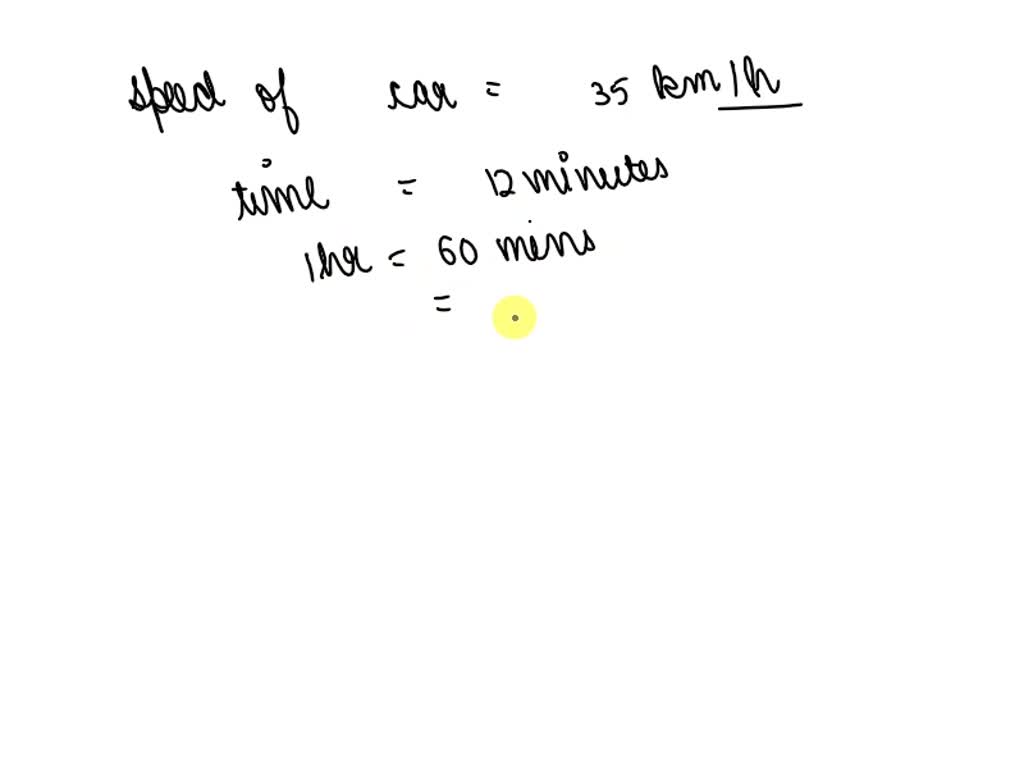 speed of car = 35 km/h
time = 12 minutes
1hr = 60 mins
=